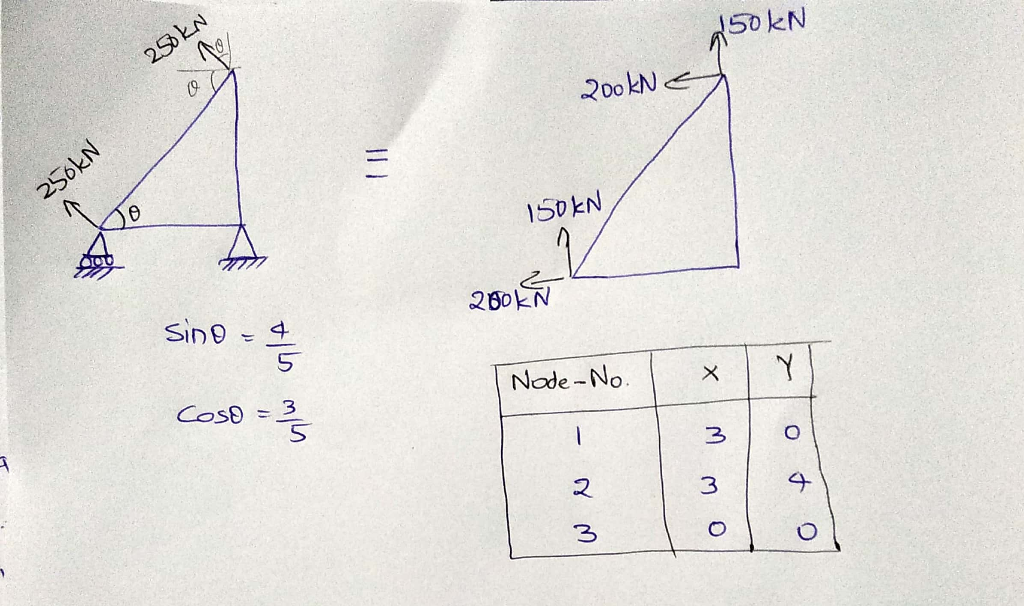 250kN
θ
θ
250kN
θ
≡
150kN
200kN
150kN
200kN
Sinθ = 4/5
Cosθ = 3/5
Node-No. X Y
1 3 0
2 3 4
3 0 0